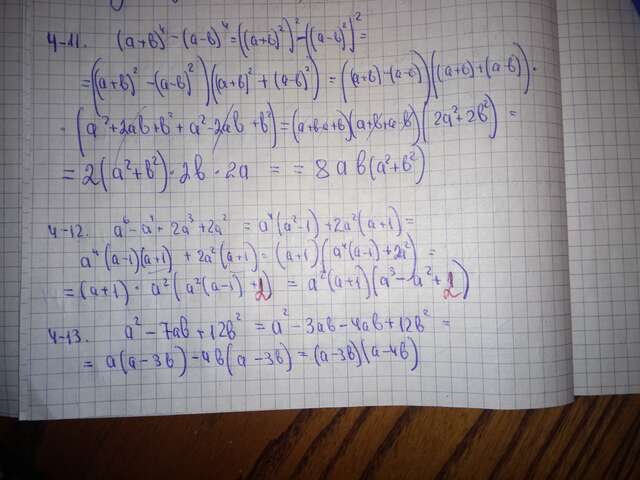 4-11. (a+b)⁴ - (a-b)⁴ = ((a+b)²)² - ((a-b)²)² =
= ((a+b)² - (a-b)²)((a+b)² + (a-b)²) = ((a+b)-(a-b))((a+b)+(a-b)) ·
· (a²+2ab+b² + a²-2ab+b²) = (a+b-a+b)(a+b+a-b)(2a²+2b²) =
= 2(a²+b²) · 2b · 2a = = 8ab(a²+b²)
4-12. a⁶ - a⁴ + 2a³ + 2a² = a⁴(a²-1) + 2a²(a+1) =
a⁴(a-1)(a+1) + 2a²(a+1) = (a+1)(a⁴(a-1) + 2a²) =
= (a+1) · a²(a²(a-1) + 2) = a²(a+1)(a³ - a² + 2)
4-13. a² - 7ab + 12b² = a² - 3ab - 4ab + 12b² =
= a(a-3b) - 4b(a-3b) = (a-3b)(a-4b)